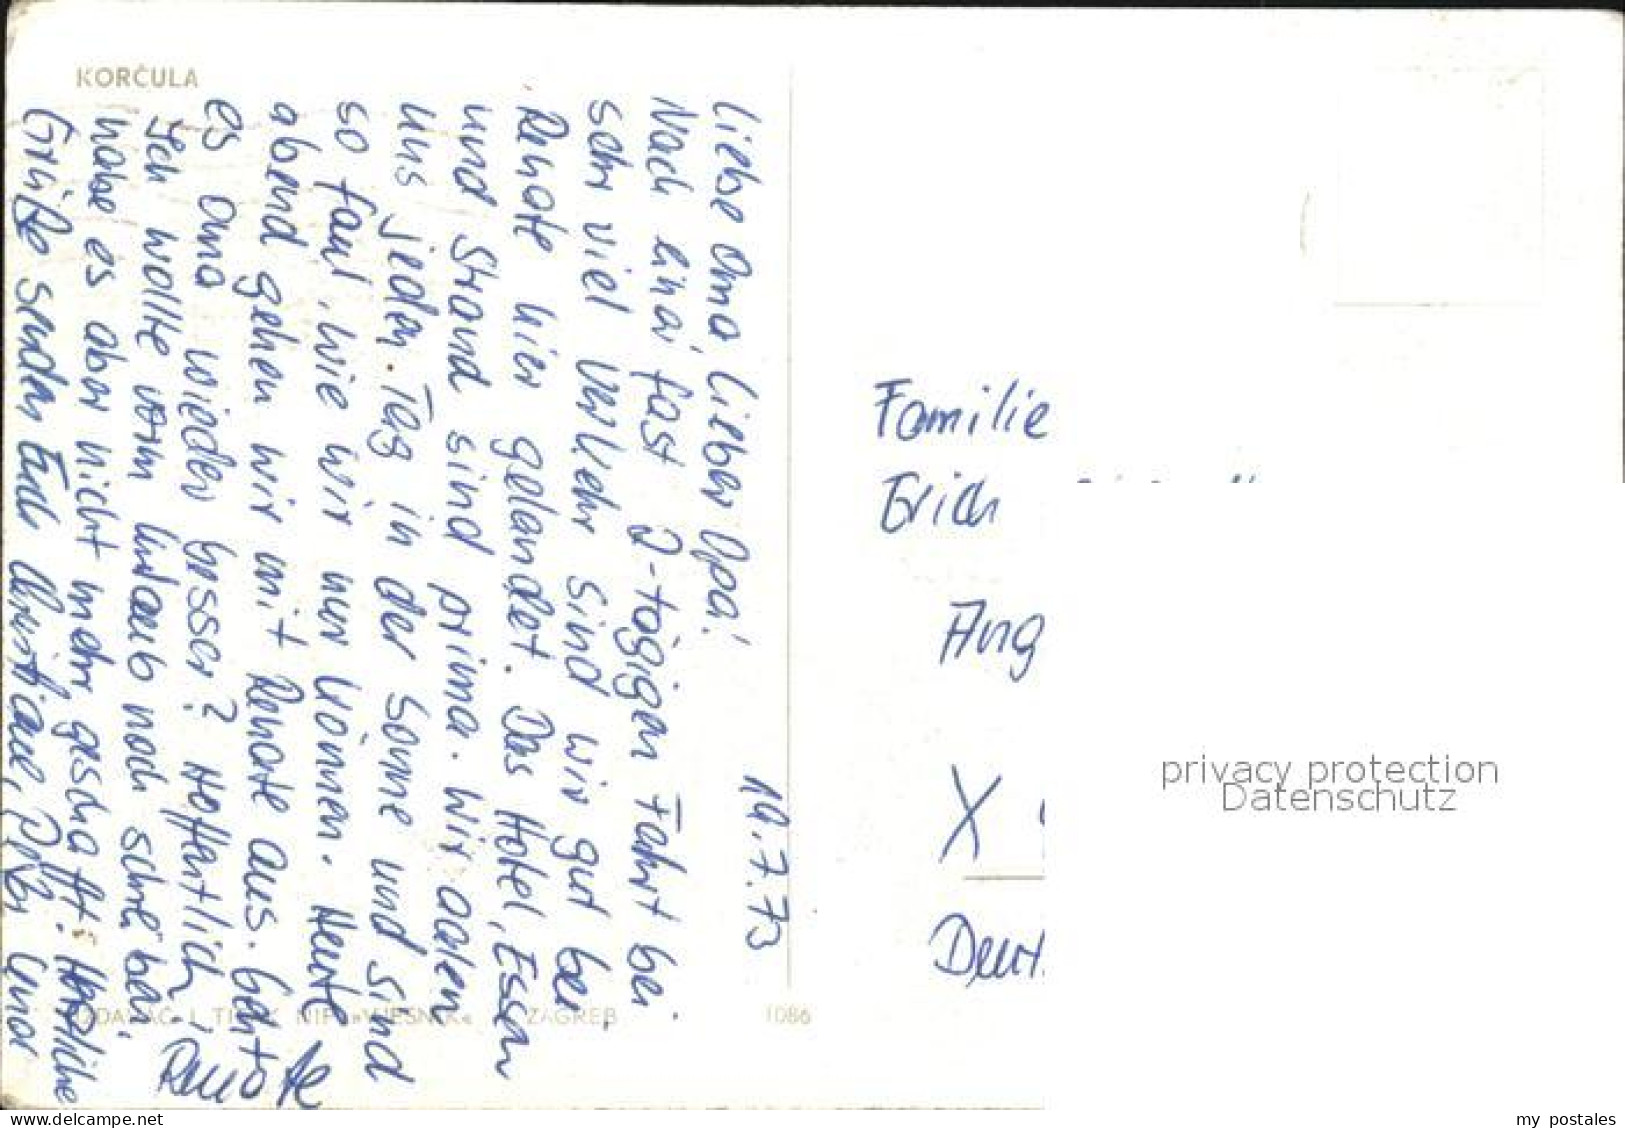 KORČULA
14.7.73
Liebe Oma, lieber Opa!
Nach einer fast 2-tägigen Fahrt bei
sehr viel Verkehr sind wir gut bei
Renate hier gelandet. Das Hotel, Essen
und Strand sind prima. Wir aalen
uns jeden Tag in der Sonne und sind
so faul, wie wir nur können. Heute
abend gehen wir mit Renate aus. Geht
es Oma wieder besser? Hoffentlich,
Ich wollte vorm Urlaub noch schreiben,
habe es aber nicht mehr geschafft. Herzliche
Grüße senden Euch Christiane, und
Renate
IZDAVAČ I TISAK NIP »VJESNIK« ZAGREB
1086
Familie
Erich
Aug
X
Deut
privacy protection
Datenschutz
my postales